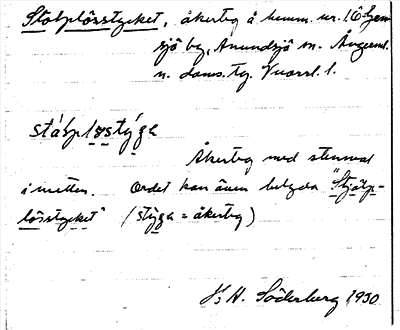 Stolplösstycket, åkerteg å hemm. nr. 16 Gen
sjö by, Anundsjö sn. Ångerml.
n. doms. Tg.
stålp løstýga
Åkerteg med stenval
i mitten. Ordet kan även betyda "Stjälp-
lösstycket" (stýga = åkerteg)
H. Söderberg 1930